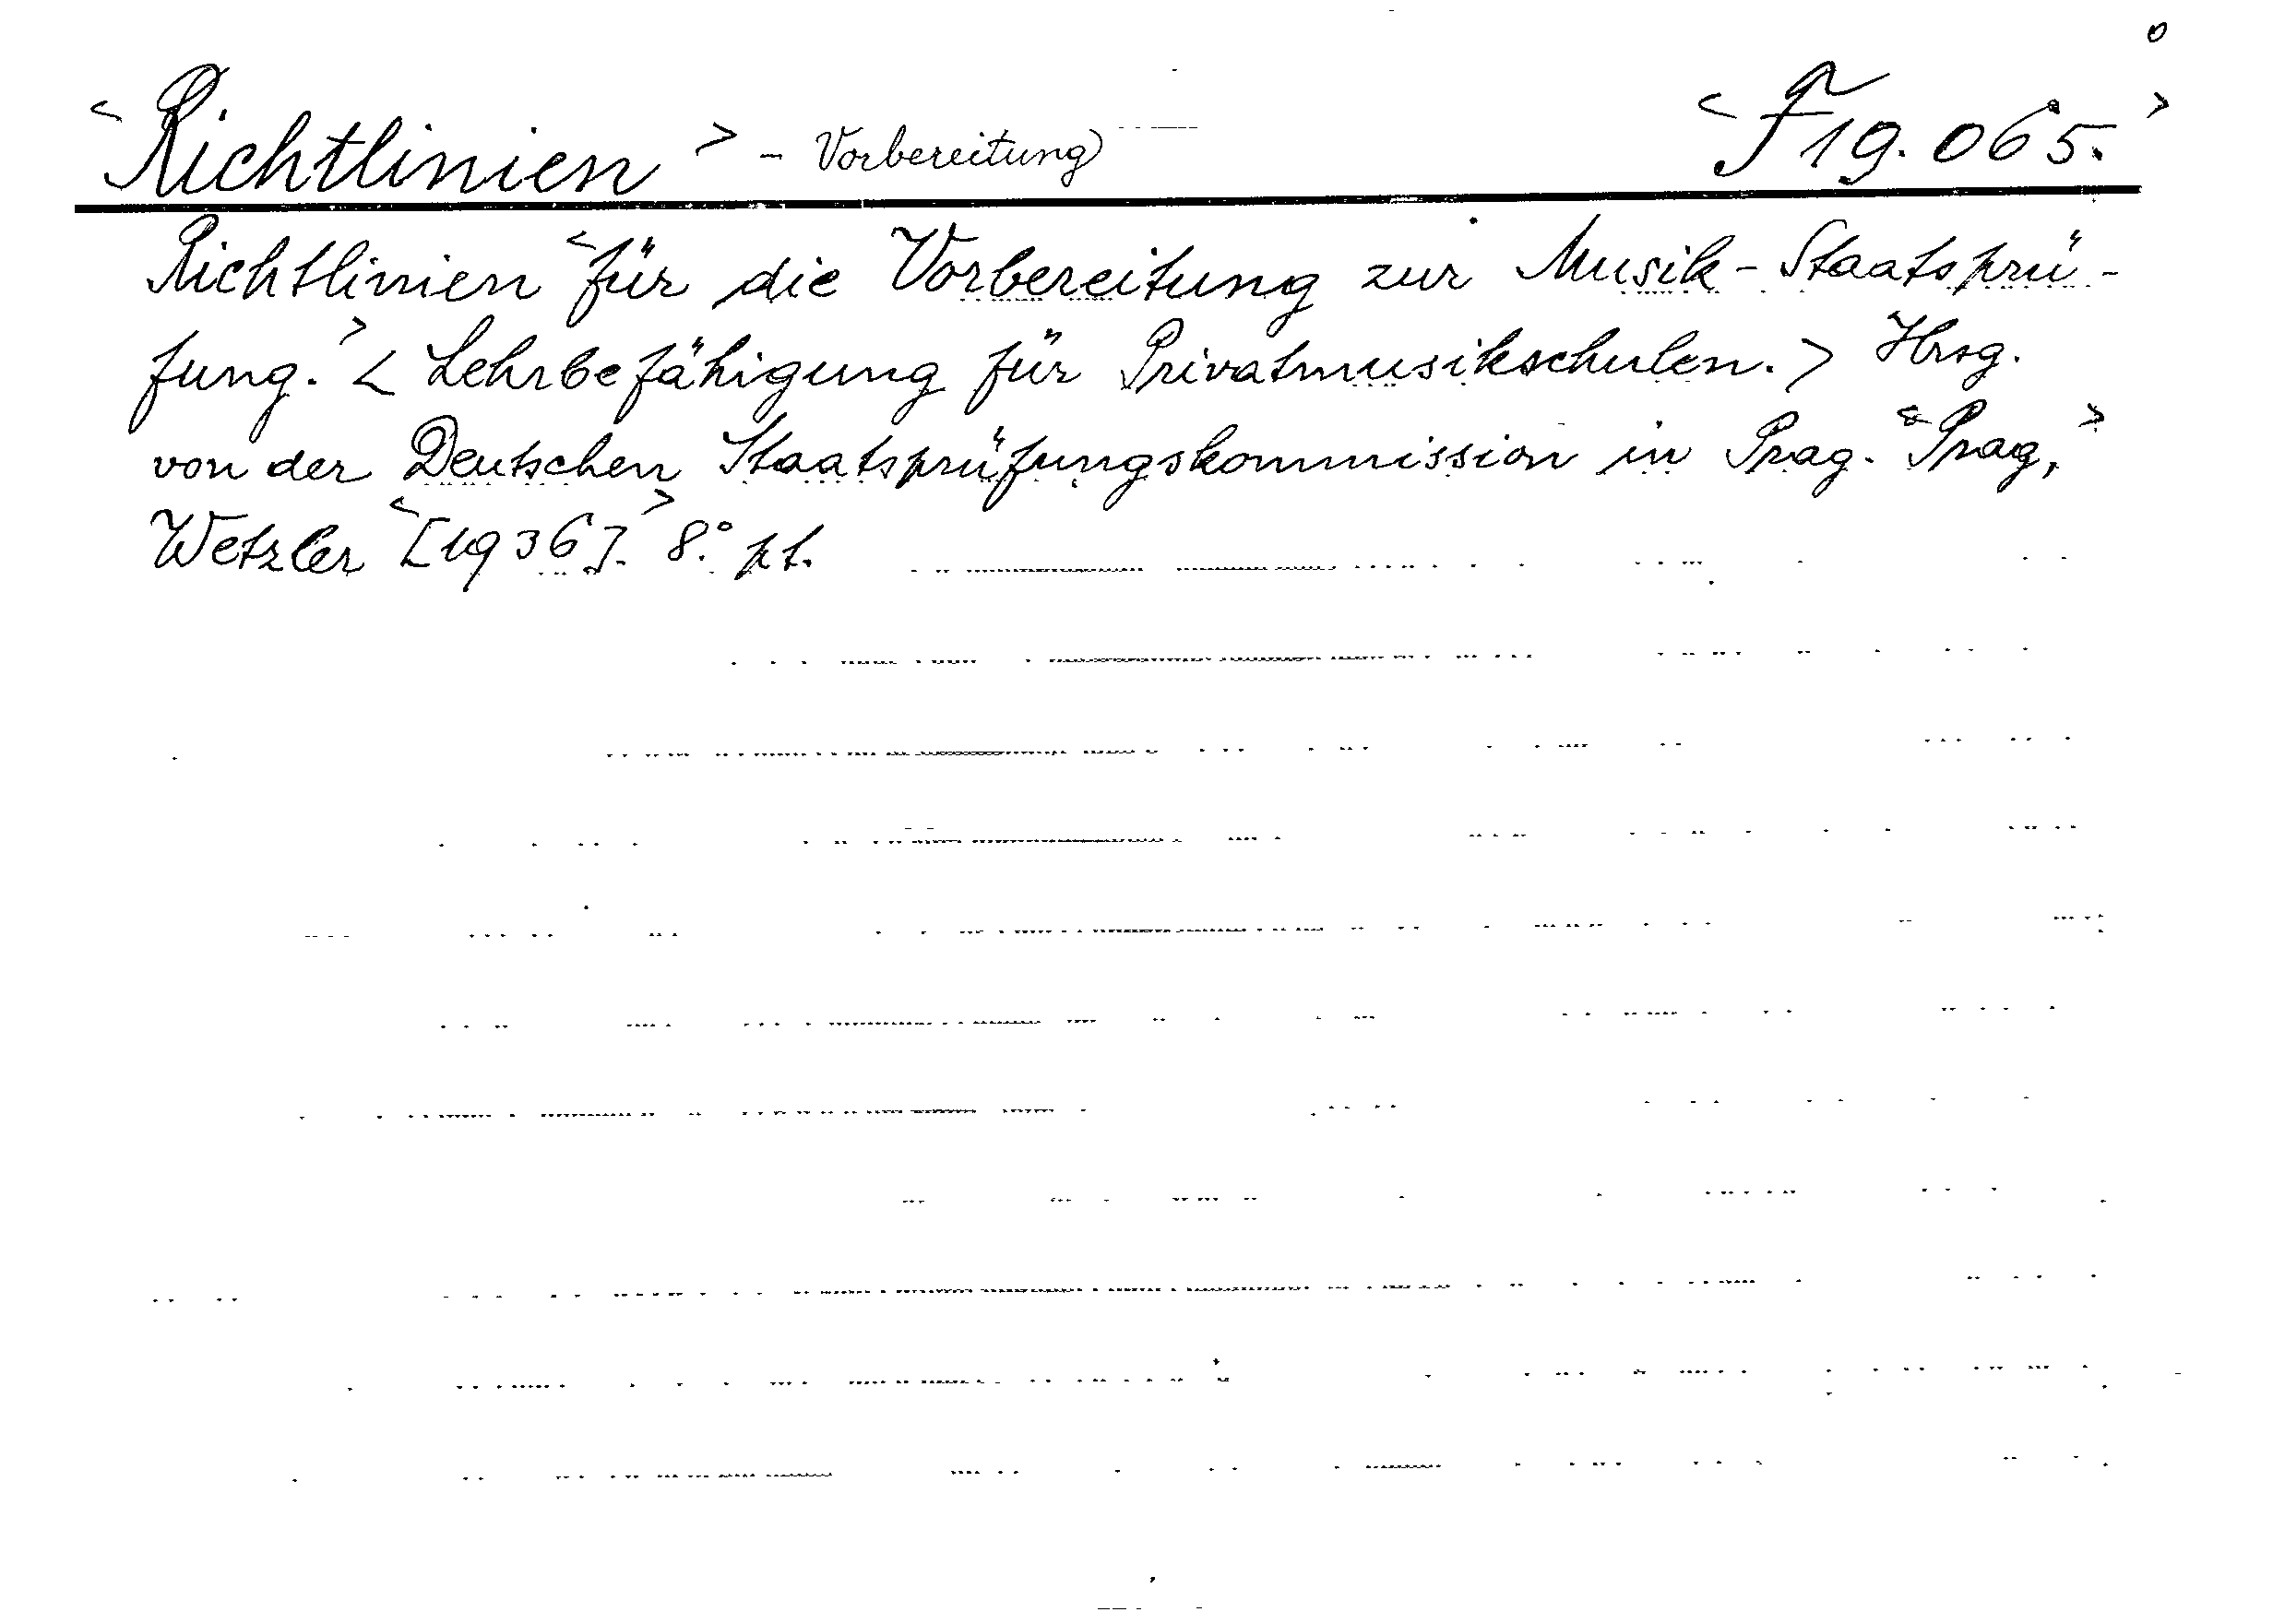 <Richtlinien> - Vorbereitung <F19.065.>
Richtlinien <für die Vorbereitung zur Musik-Staatsprü-
fung.> < Lehrbefähigung für Privatmusikschulen. > Hrsg.
von der Deutschen Staatsprüfungskommission in Prag. <Prag,>
Wetzler <[1936].> 8.° pt.